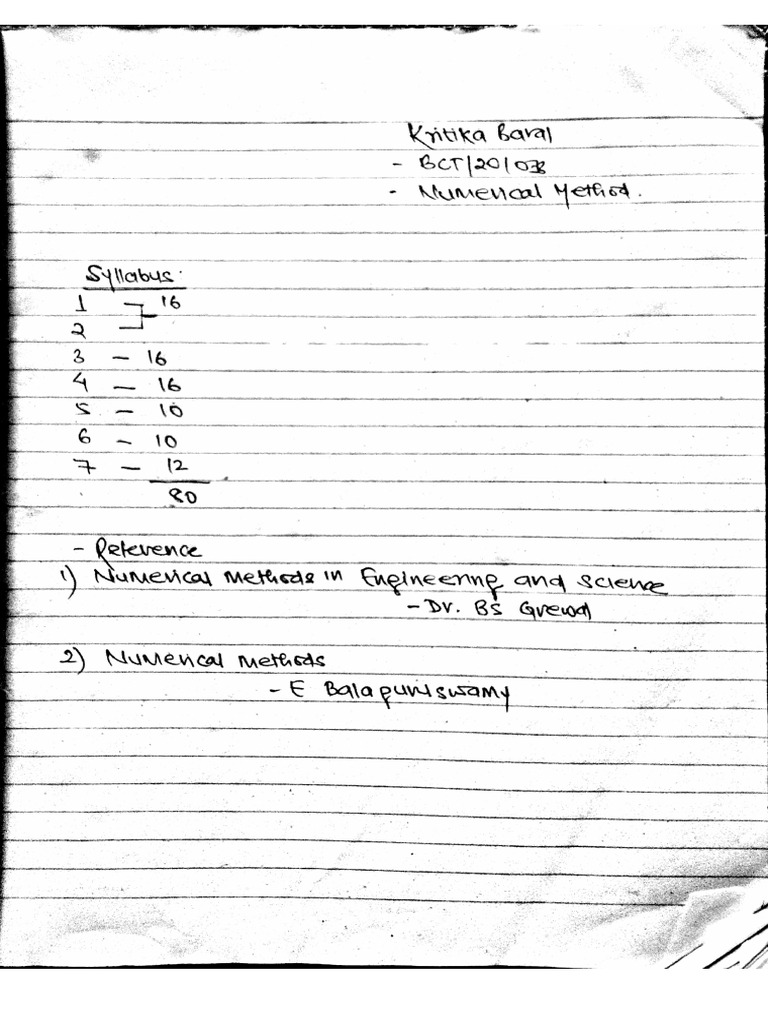 Kritika Baral
- BCT/20/038
- Numerical Method.
Syllabus:
1 - 16
2 -
3 - 16
4 - 16
5 - 10
6 - 10
7 - 12
80
- Reference
1) Numerical Methods in Engineering and Science
- Dr. BS Grewal
2) Numerical Methods
- E Balaguruswamy